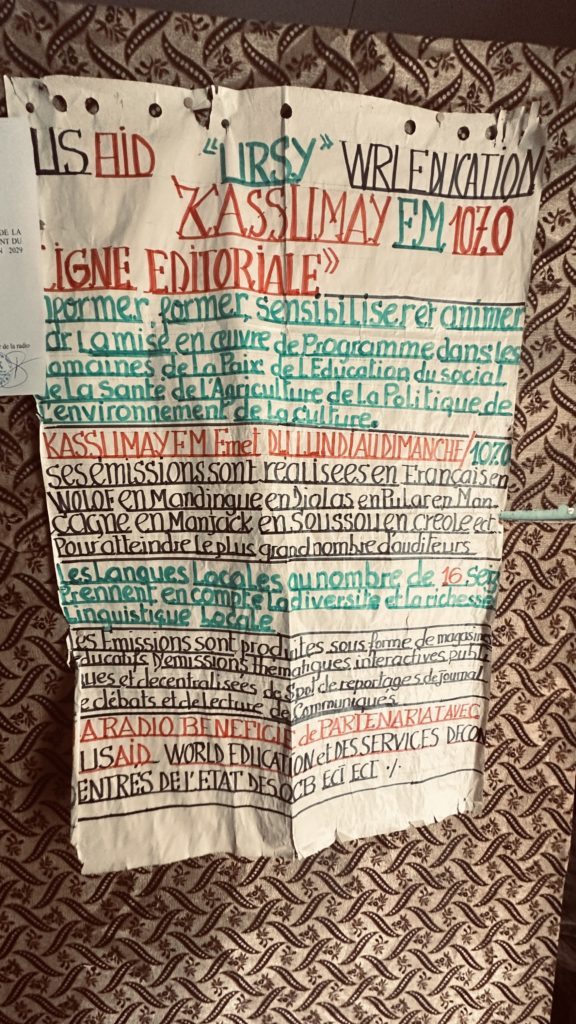 USAID "URSY" WRLEDUCATION
KASSUMAY FM 107.0
LIGNE EDITORIALE"
nformer former, sensibiliser et animer
Par la mise en œuvre de Programme dans les
omaines de la Paix de l'Education du social
de la Santé de l'Agriculture de la Politique de
l'environnement de la culture.
KASSUMAY FM Emet DU LUNDI AU DIMANCHE/107.0
ses émissions sont realisees en Français en
WOLOF en Mandingue en Diolas en Pular en Man-
cagne en Manjack en soussou en creole ect
Pour atteindre le plus grand nombre d'auditeurs
Les Langues Locales au nombre de 16 Ser
Prennent en compte la diversite et la richesse
Linguistique Locale
es Emissions sont produites sous forme de magasines
educatifs D'emissions thematiques interactives publi
ques et decentralisees de Spot de reportages de journal
e débats et de lecture de Communiqués.
A RADIO BENEFICIE de PARTENARIAT AVEC
USAID WORLD EDUCATION et DES SERVICES DECON
ENTRES DE L'ETAT DES OCB ECT ECT ·/·
DE LA
NT DU
N 2029
de la radio